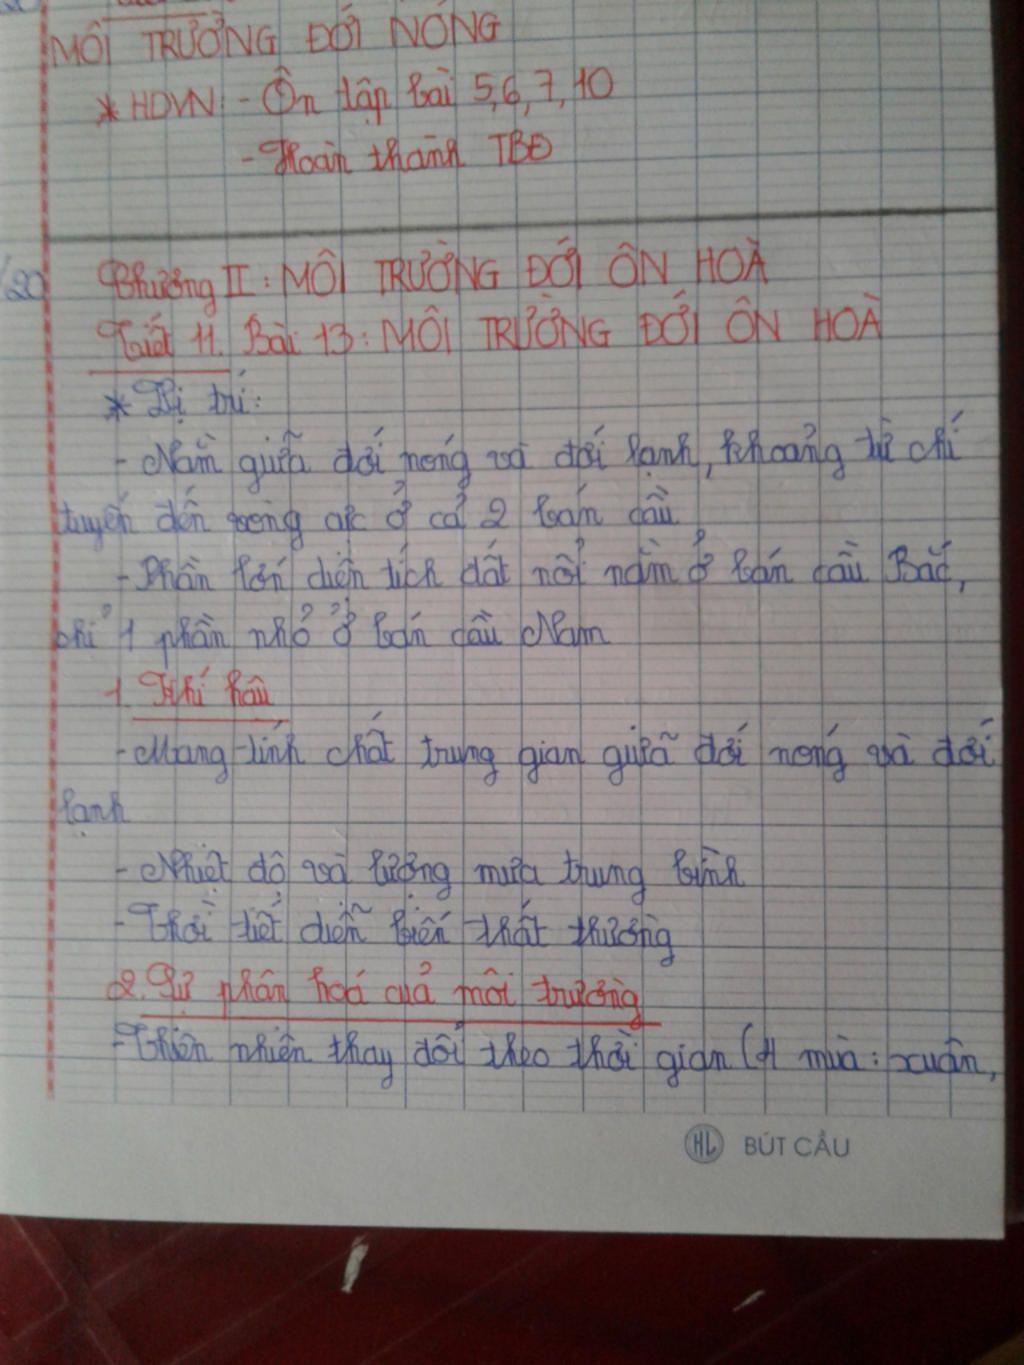 MÔI TRƯỜNG ĐỚI NÓNG
* HDVN: - Ôn tập bài 5, 6, 7, 10
- Hoàn thành TBĐ
/20
Chương II: MÔI TRƯỜNG ĐỚI ÔN HOÀ
Tiết 11. Bài 13: MÔI TRƯỜNG ĐỚI ÔN HOÀ
* Vị trí:
- Nằm giữa đới nóng và đới lạnh, khoảng từ chí
tuyến đến vòng cực ở cả 2 bán cầu
- Phần lớn diện tích đất nổi nằm ở bán cầu Bắc,
chỉ 1 phần nhỏ ở bán cầu Nam
1. Khí hậu
- Mang tính chất trung gian giữa đới nóng và đới
lạnh
- Nhiệt độ và lượng mưa trung bình
- Thời tiết diễn biến thất thường
2. Sự phân hoá của môi trường
- Thiên nhiên thay đổi theo thời gian (4 mùa: xuân,
HL BÚT CẦU